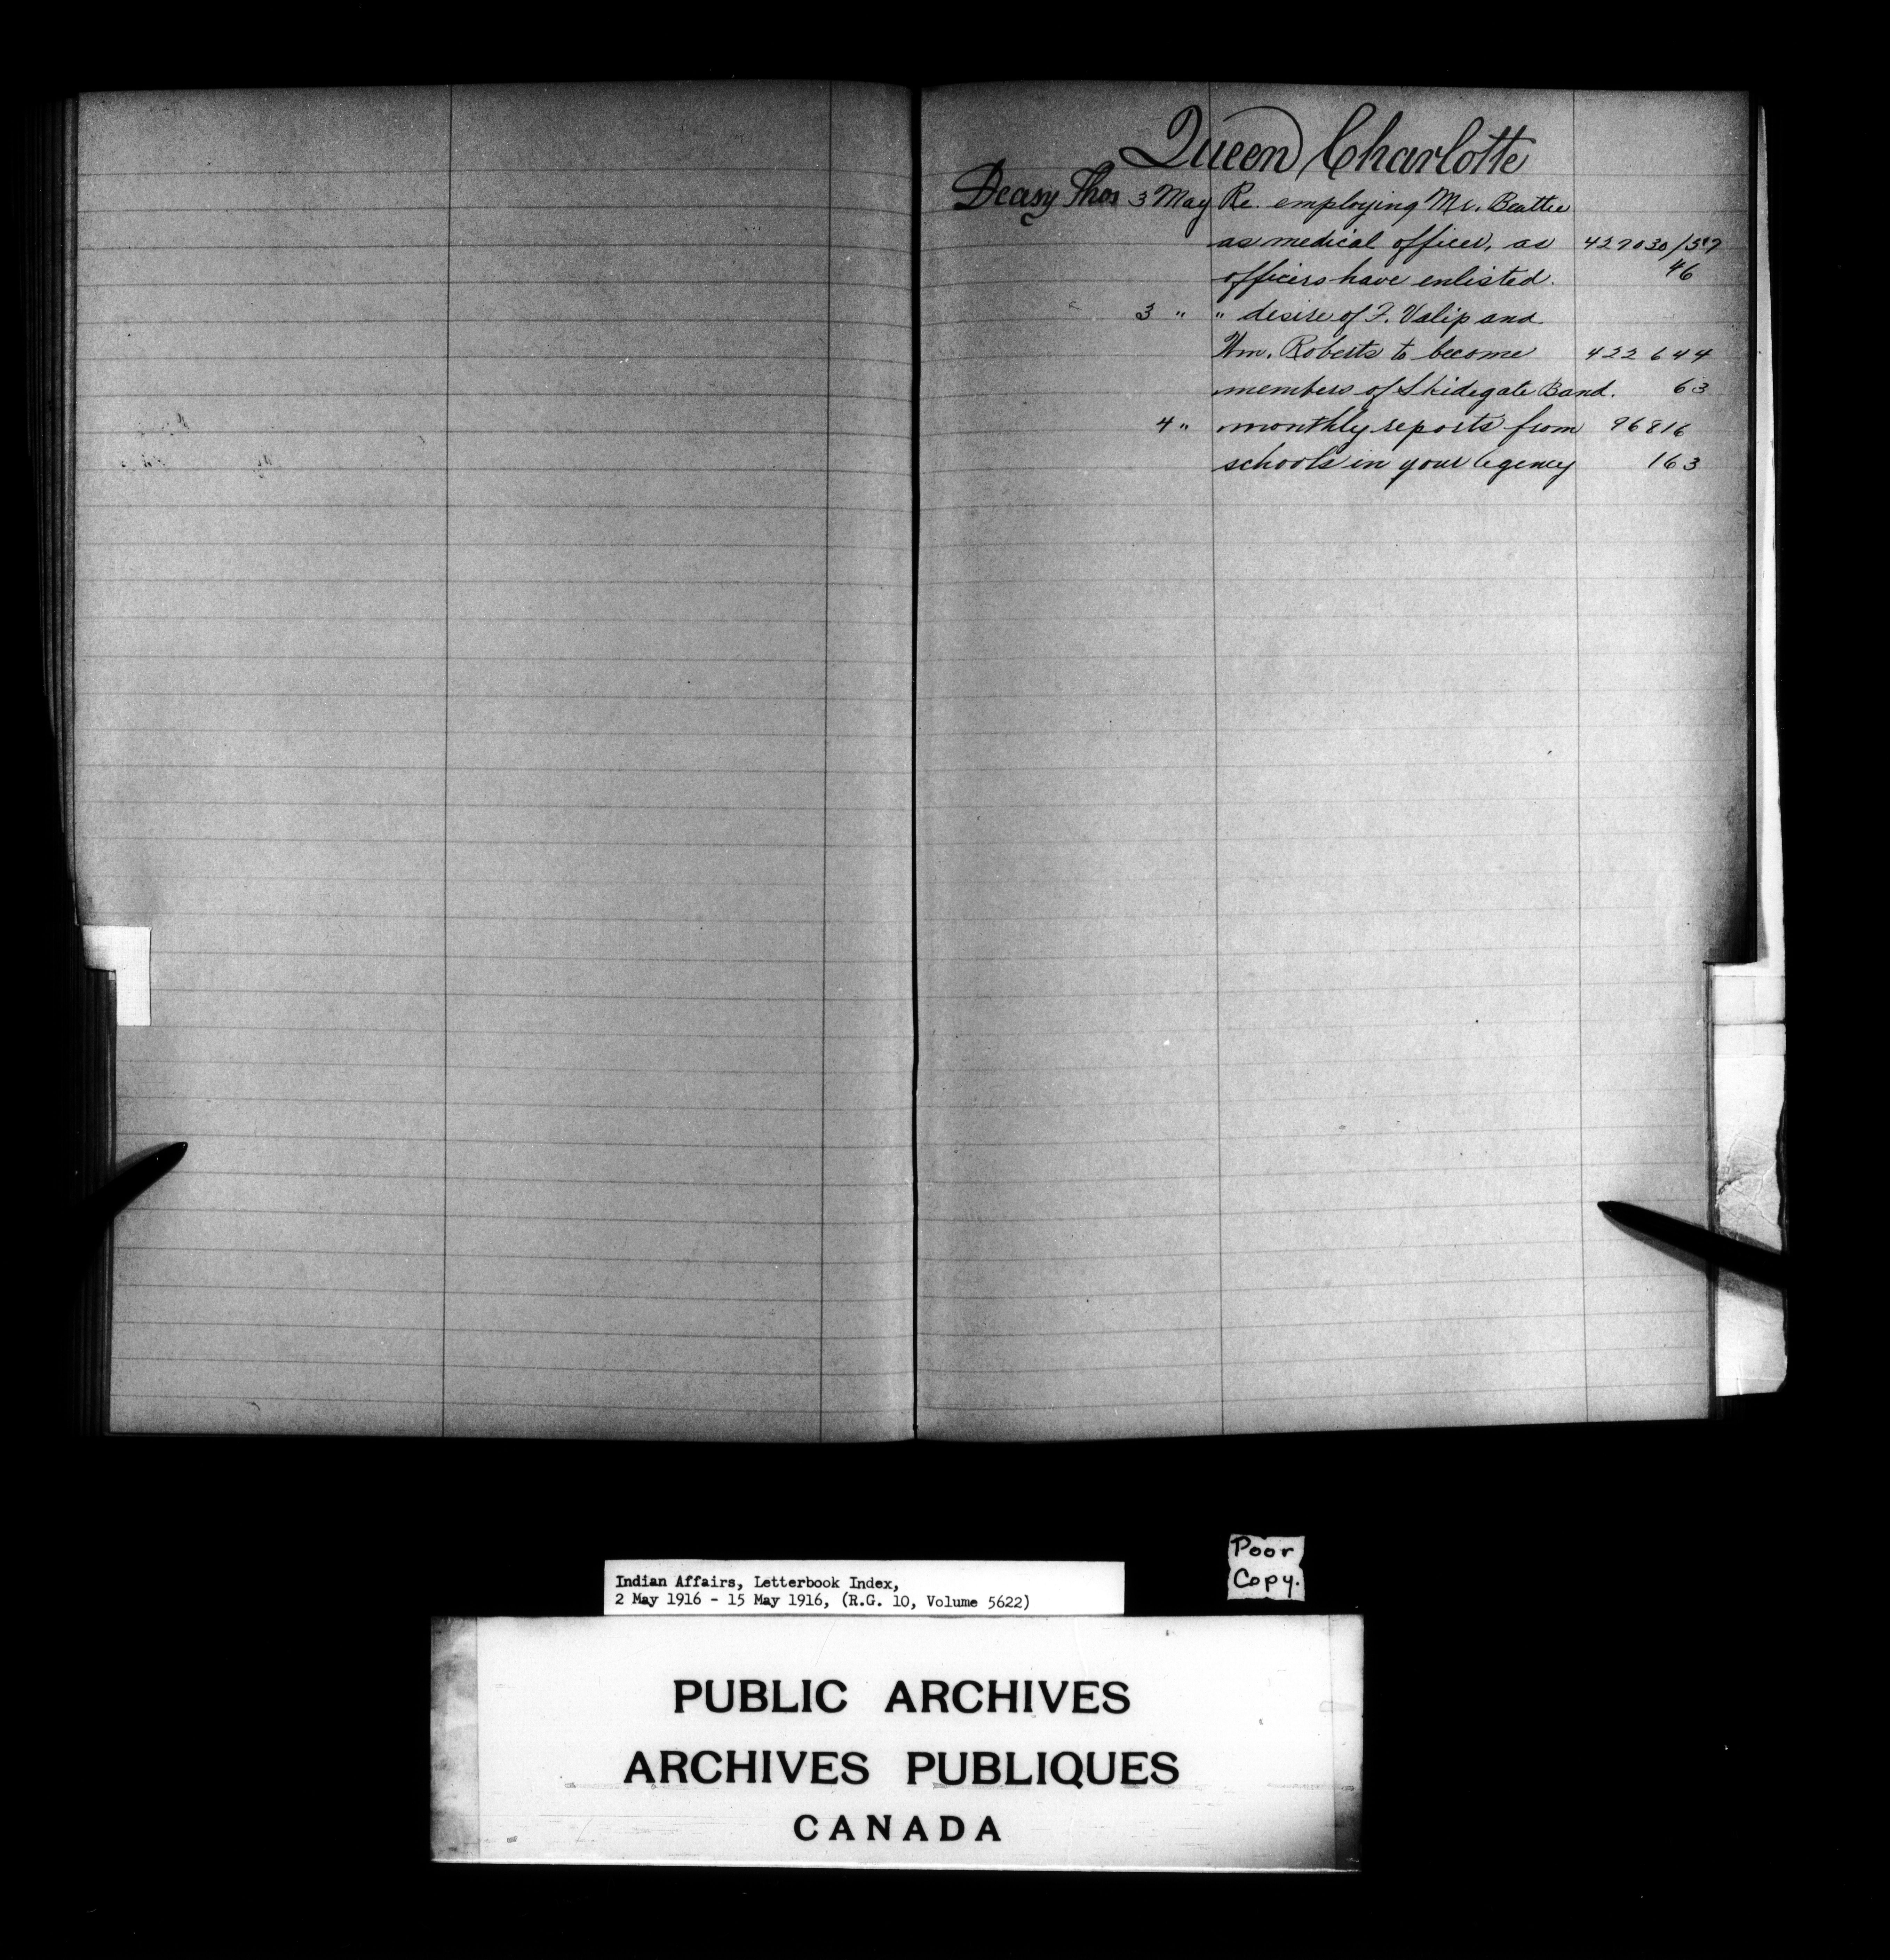 Queen Charlotte
Deasy Thos 3 May Re. employing Mr. Beattie
as medical officer, as 427030/
officers have enlisted. 46
3 " " desire of F. Valip and
Wm. Roberts to become 422 644
members of Skidegate Band. 63
4 " monthly reports from 96816
schools in your agency 163
Poor
Copy.
Indian Affairs, Letterbook Index,
2 May 1916 - 15 May 1916, (R.G. 10, Volume 5622)
PUBLIC ARCHIVES
ARCHIVES PUBLIQUES
CANADA